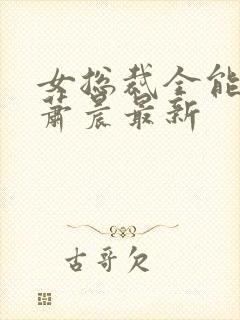 女总裁全能
萧晨最新
古哥欠